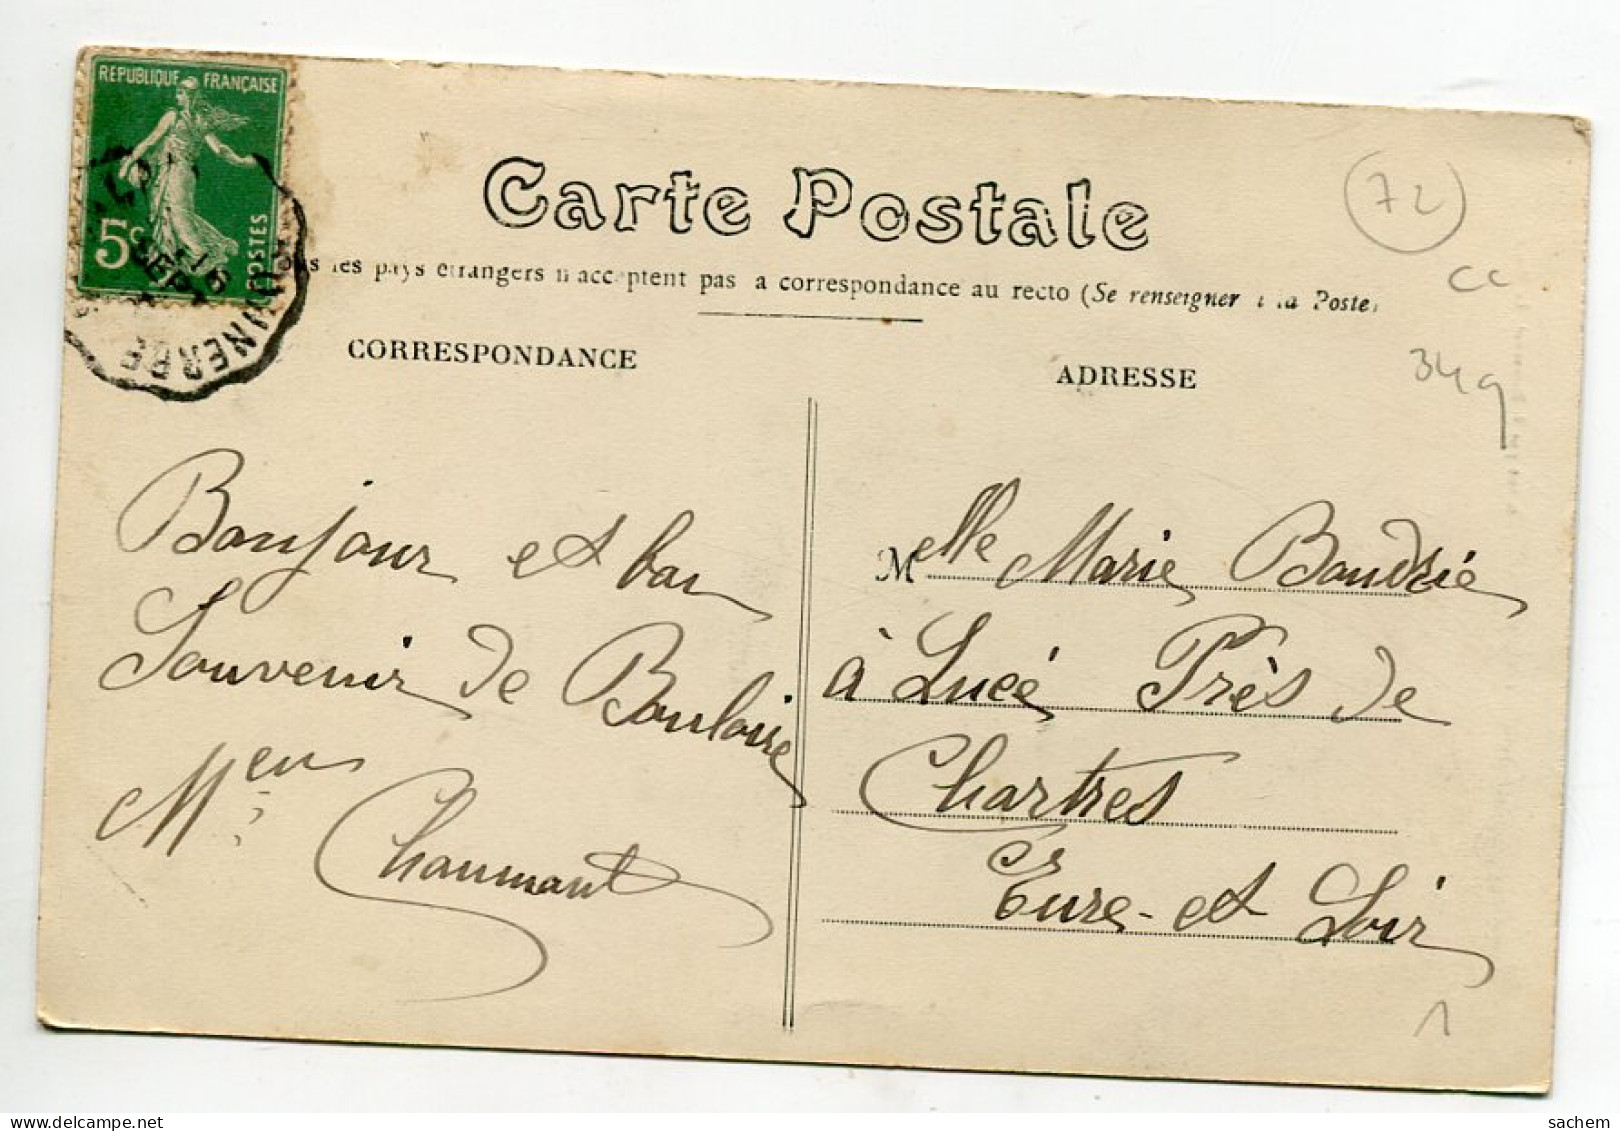 RÉPUBLIQUE FRANÇAISE
5c POSTES
Carte Postale
les pays étrangers n'acceptent pas a correspondance au recto (Se renseigner à la Poste)
CORRESPONDANCE
ADRESSE
72
CC
349
Bonjour et bon
Souvenir de Bouloire
Chaumont
Melle Marie Baudrie
à Lucé Près de
Chartres
Eure-et Loir
1
sachem